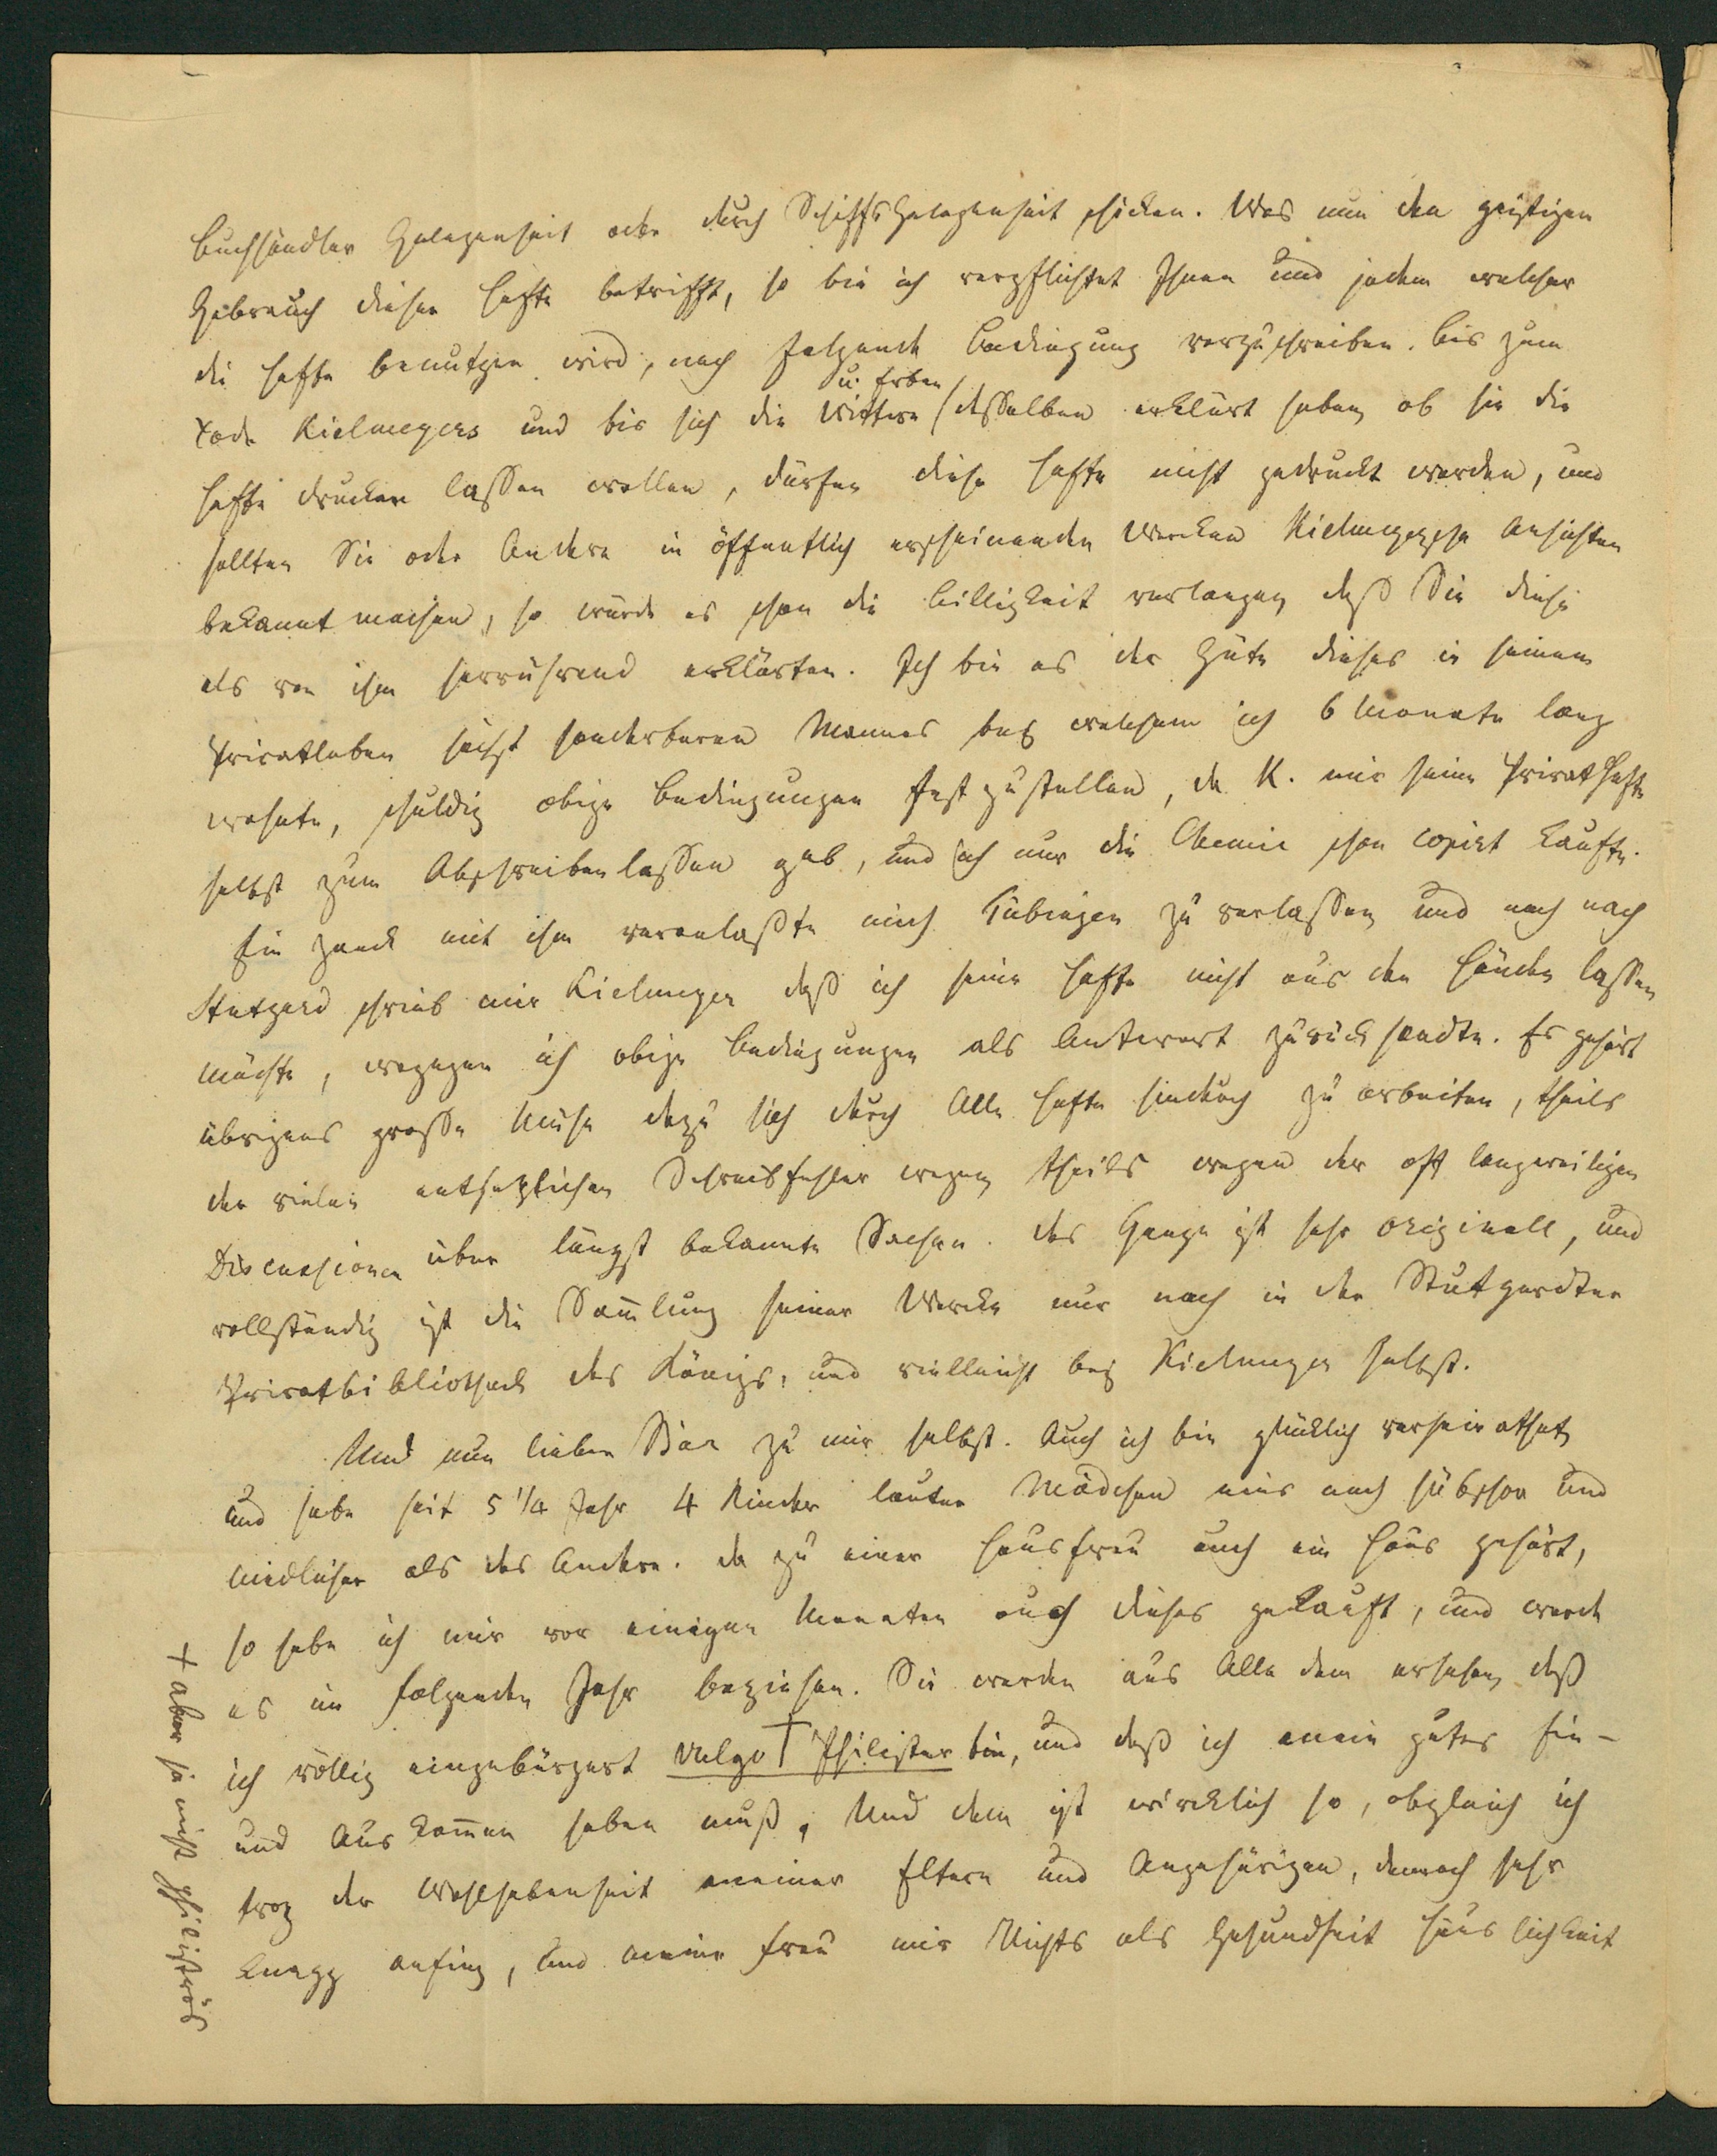 Buchhändler Gelegenheit oder durch Schiffsgelegenheit schicken. Was nun den geistigen
Gebrauch dieser Hefte betrifft, so bin ich verpflichtet Ihnen und jedem welcher
die Hefte benutzen wird, noch folgende Bedingung vorzuschreiben. Bis zum
Tode Kielmeyers und bis sich die Wittwe u. Erben desselben erklärt haben, ob sie die
Hefte drucken lassen wollen, dürfen diese Hefte nicht gedruckt werden, und
sollten Sie oder Andere in öffentlich erscheinenden Wercken Kielmeyersche Ansichten
bekannt machen, so würde es schon die Billigkeit verlangen, daß Sie diese
als von ihm herrührend erklärten. Ich bin es der Güte dieses in seinem
Privatleben höchst sonderbaren Mannes bey welchem ich 6 Monate lang
wohnte, schuldig obige Bedingungen fest zu stellen, da K. mir seine Privathefte
selbst zum Abschreiben lassen gab, und ich nur die Chemie schon copirt kaufte.
Ein Zanck mit ihm veranlaßte mich Tübingen zu verlassen, und noch nach
Stutgard schrieb mir Kielmeyer daß ich seine Hefte nicht aus den Händen lassen
möchte, wogegen ich obige Bedingungen als Antwort zurück sandte. Es gehört
übrigens grosse Mühe dazu sich durch Alle Hefte hindurch zu arbeiten, theils
der vielen entsetzlichen Schreibfehler wegen, theils wegen der oft langweiligen
Discussionen über längst bekannte Sachen. Das Ganze ist sehr originell, und
vollständig ist die Sam̄lung seiner Wercke nur noch in der Stutgardter
Privatbibliotheck des Königs, und vielleicht bey Kielmeyer selbst.
Und nun lieber Bär zu mir selbst. Auch ich bin glücklich verheirathet,
und habe seit 5 1/4 Jahr 4 Kinder lauter Mädchen eins noch hübscher und
niedlicher als das Andere. Da zu einer Hausfrau auch ein Haus gehört,
so habe ich mir vor einigen Monaten auch dieses gekauft, und werde
es im folgenden Jahr beziehen. Sie werden aus Alle dem ersehen, daß
ich völlig eingebürgert vulgo † Philister bin, und daß ich mein gutes Ein-
und Auskom̄en haben muß. Und dem ist wircklich so, obgleich ich
troz der Wohlhabenheit meiner Eltern und Angehörigen, dennoch sehr
knapp anfing, und meine Frau mir Nichts als Gesundheit Häuslichkeit
+ aber ja nicht philiströs